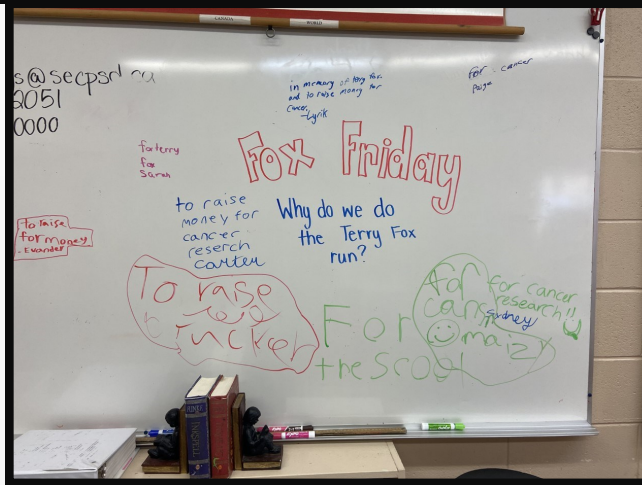 CANADA
WORLD
s@secpsd.ca
2051
0000
in memory of terry fox
and to raise money for
cancer
-Lyrik
for cancer
paige
for terry
fox
Sarah
Fox Friday
to raise
money for
cancer
reserch
carter
Why do we do
the Terry Fox
run?
to raise
for money
-Evander
To raise
For
the scool
for
cancer
maizy
for cancer
research!!
Sydney